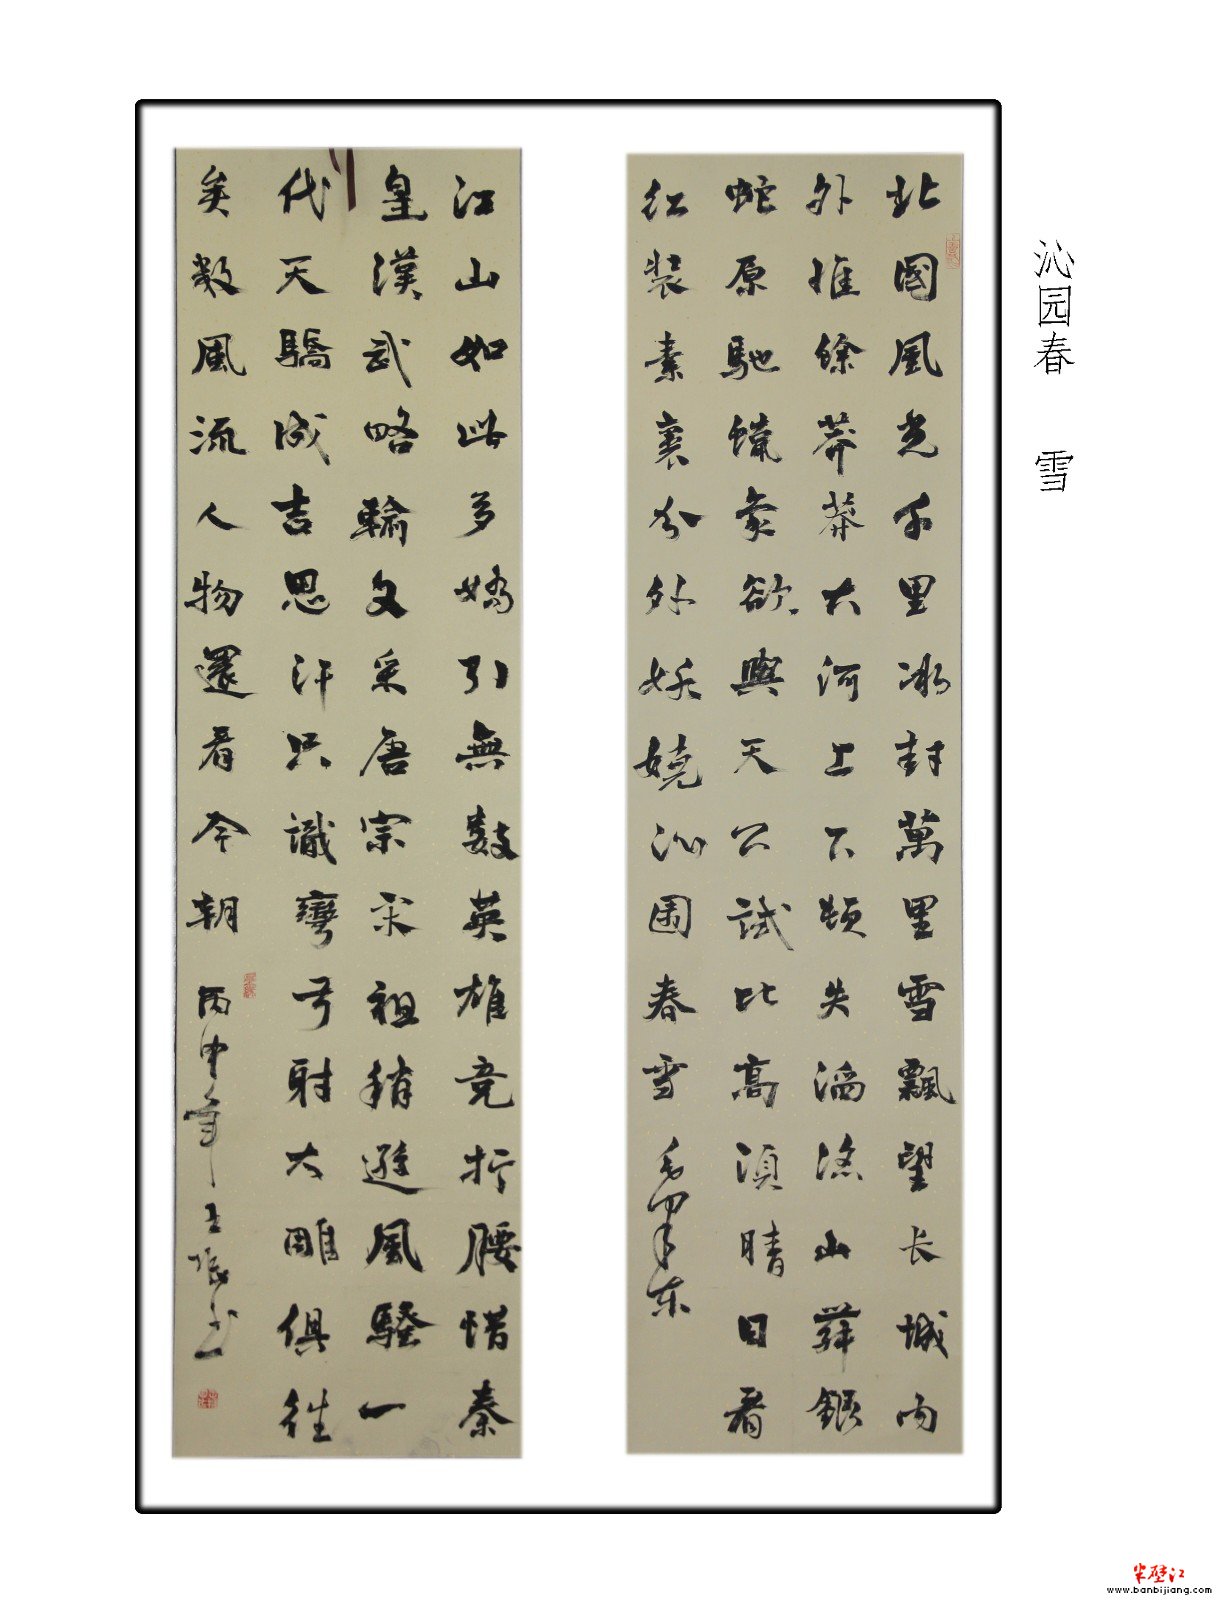 沁园春 雪
北國風光千里冰封萬里雪飄望长城内
外惟餘莽莽大河上下頓失滔滔山舞銀
蛇原馳蠟象欲與天公試比高須晴日看
红装素裹分外妖嬈沁園春雪 毛泽东
江山如此多嬌引無數英雄竞折腰惜秦
皇漢武略輸文采唐宗宋祖稍遜風騷一
代天驕成吉思汗只識彎弓射大雕俱往
矣数風流人物還看今朝 丙申年 王振书
半壁江
www.banbijiang.com